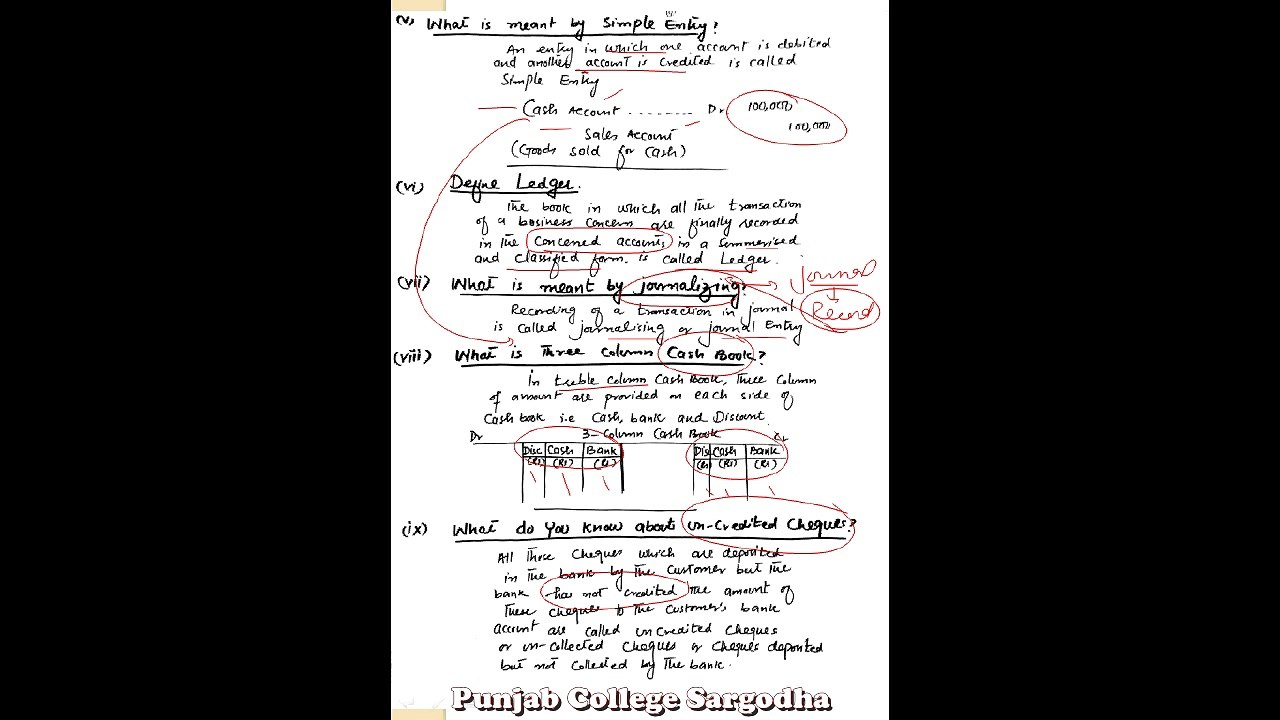 (v) What is meant by Simple Entry?
An entry in which one account is debited
and another account is credited is called
Simple Entry
Cash Account ........ Dr 100,000
100,000
Sales Account
(Goods sold for Cash)
(vi) Define Ledger.
The book in which all the transaction
of a business concern are finally recorded
in the concened accounts in a summerised
and classified form. is called Ledger.
(vii) What is meant by journalizing?
Journal
Recording of a transaction in journal
Record
is called journalising or journal Entry
(viii) What is Three column Cash Book?
In treble column Cash Book, Three column
of amount are provided on each side of
Cash book i.e Cash, bank and Discount.
Dr 3-Column Cash Book Cr
Disc Cash Bank Dis Cash Bank
(Rs) (Rs) (Rs) (Rs) (Rs) (Rs)
(ix) What do You know about un-Credited Cheques?
All Those Cheques which are deposited
in The bank by The Customer but the
bank has not credited The amount of
These cheques to the customer's bank
account are called uncredited cheques
or un-collected cheques or cheques deposited
but not collected by The bank.
Punjab College Sargodha